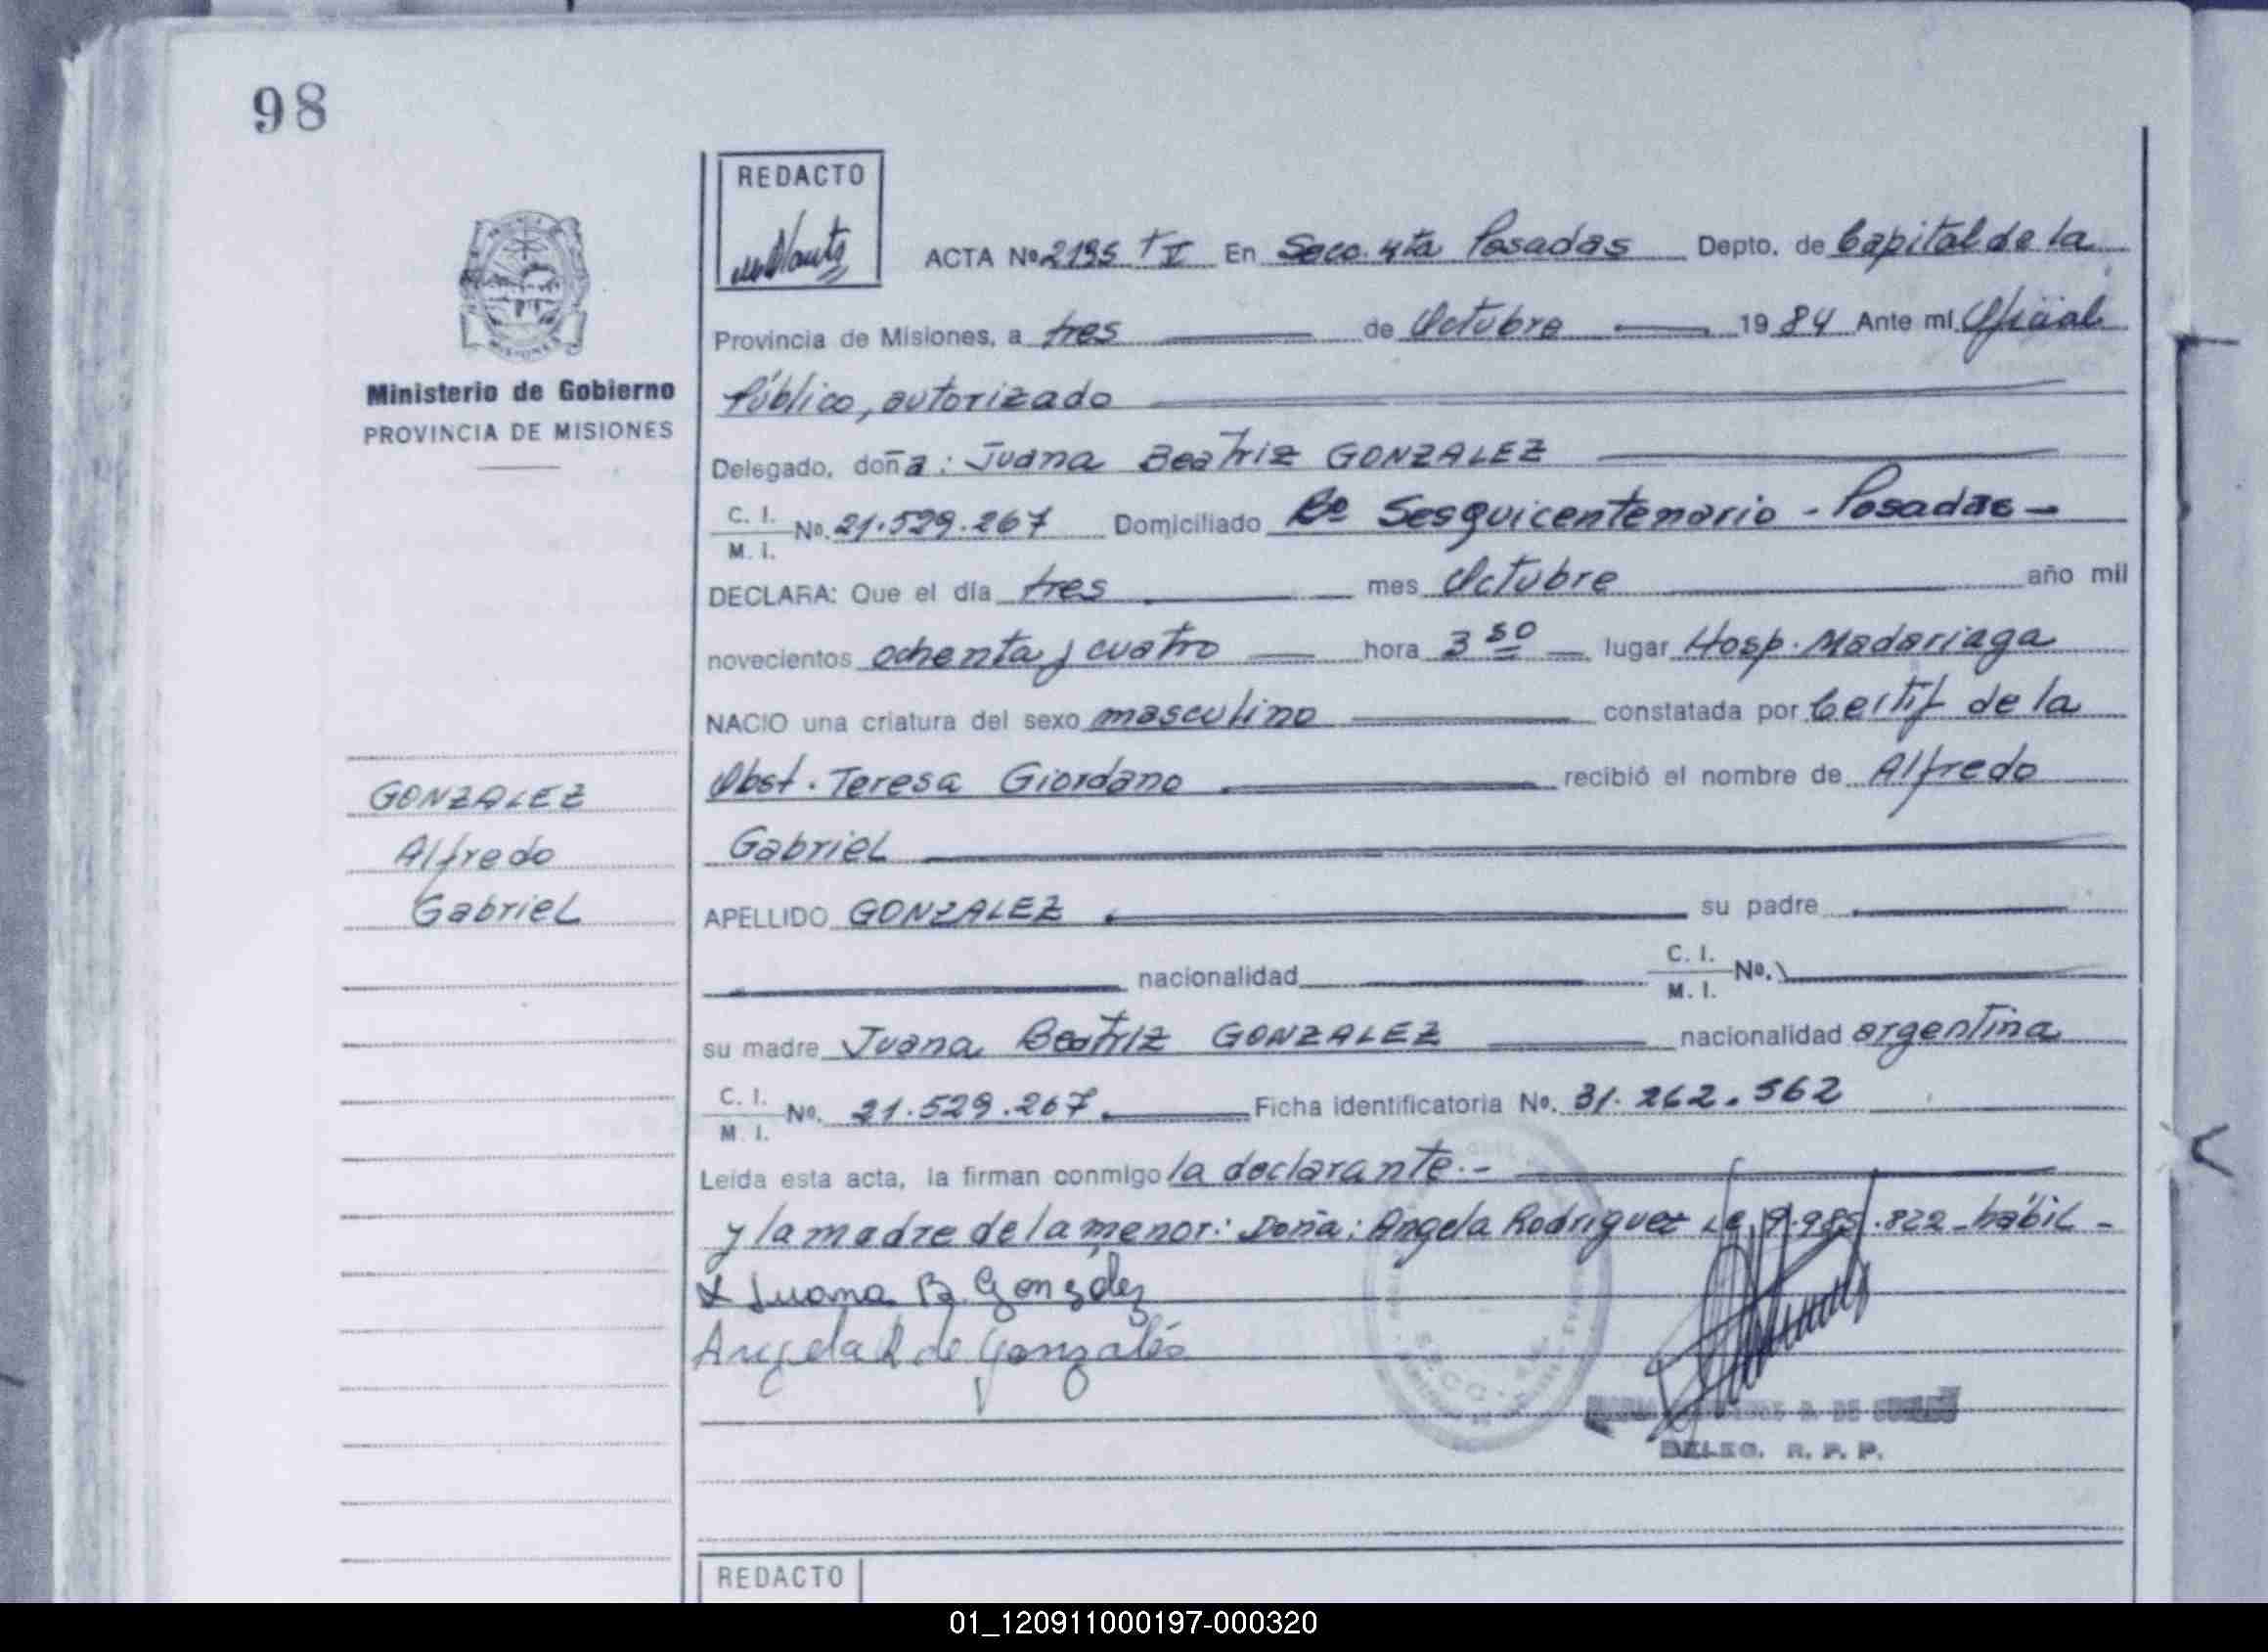 98
REDACTO
MISIONES
Ministerio de Gobierno
PROVINCIA DE MISIONES
ACTA Nº 2195 T I En Secc. 4ta Posadas Depto. de Capital de la
Provincia de Misiones, a tres de Octubre 19 84 Ante mi Oficial
Público, autorizado
Delegado, doña: Juana Beatriz GONZALEZ
C. I.
M. I. Nº. 21.529.267 Domiciliado Bº Sesquicentenario - Posadas -
DECLARA: Que el día tres mes Octubre año mil
novecientos ochenta y cuatro hora 3 50 lugar Hosp. Madariaga
NACIO una criatura del sexo masculino constatada por Certif de la
Obst. Teresa Giordano recibió el nombre de Alfredo
Gabriel
GONZALEZ
Alfredo
Gabriel
APELLIDO GONZALEZ su padre
nacionalidad C. I.
M. I. Nº.
su madre Juana Beatriz GONZALEZ nacionalidad argentina
C. I.
M. I. Nº. 21.529.267. Ficha identificatoria Nº. 31.262.562
Leída esta acta, la firman conmigo la declarante.-
y la madre de la menor: Doña: Angela Rodriguez LC 9.985.822 - hábil -
x Juana B. González
Angela R de Gonzalés
SECC.
DELEG. R. P. P.
REDACTO
01_120911000197-000320